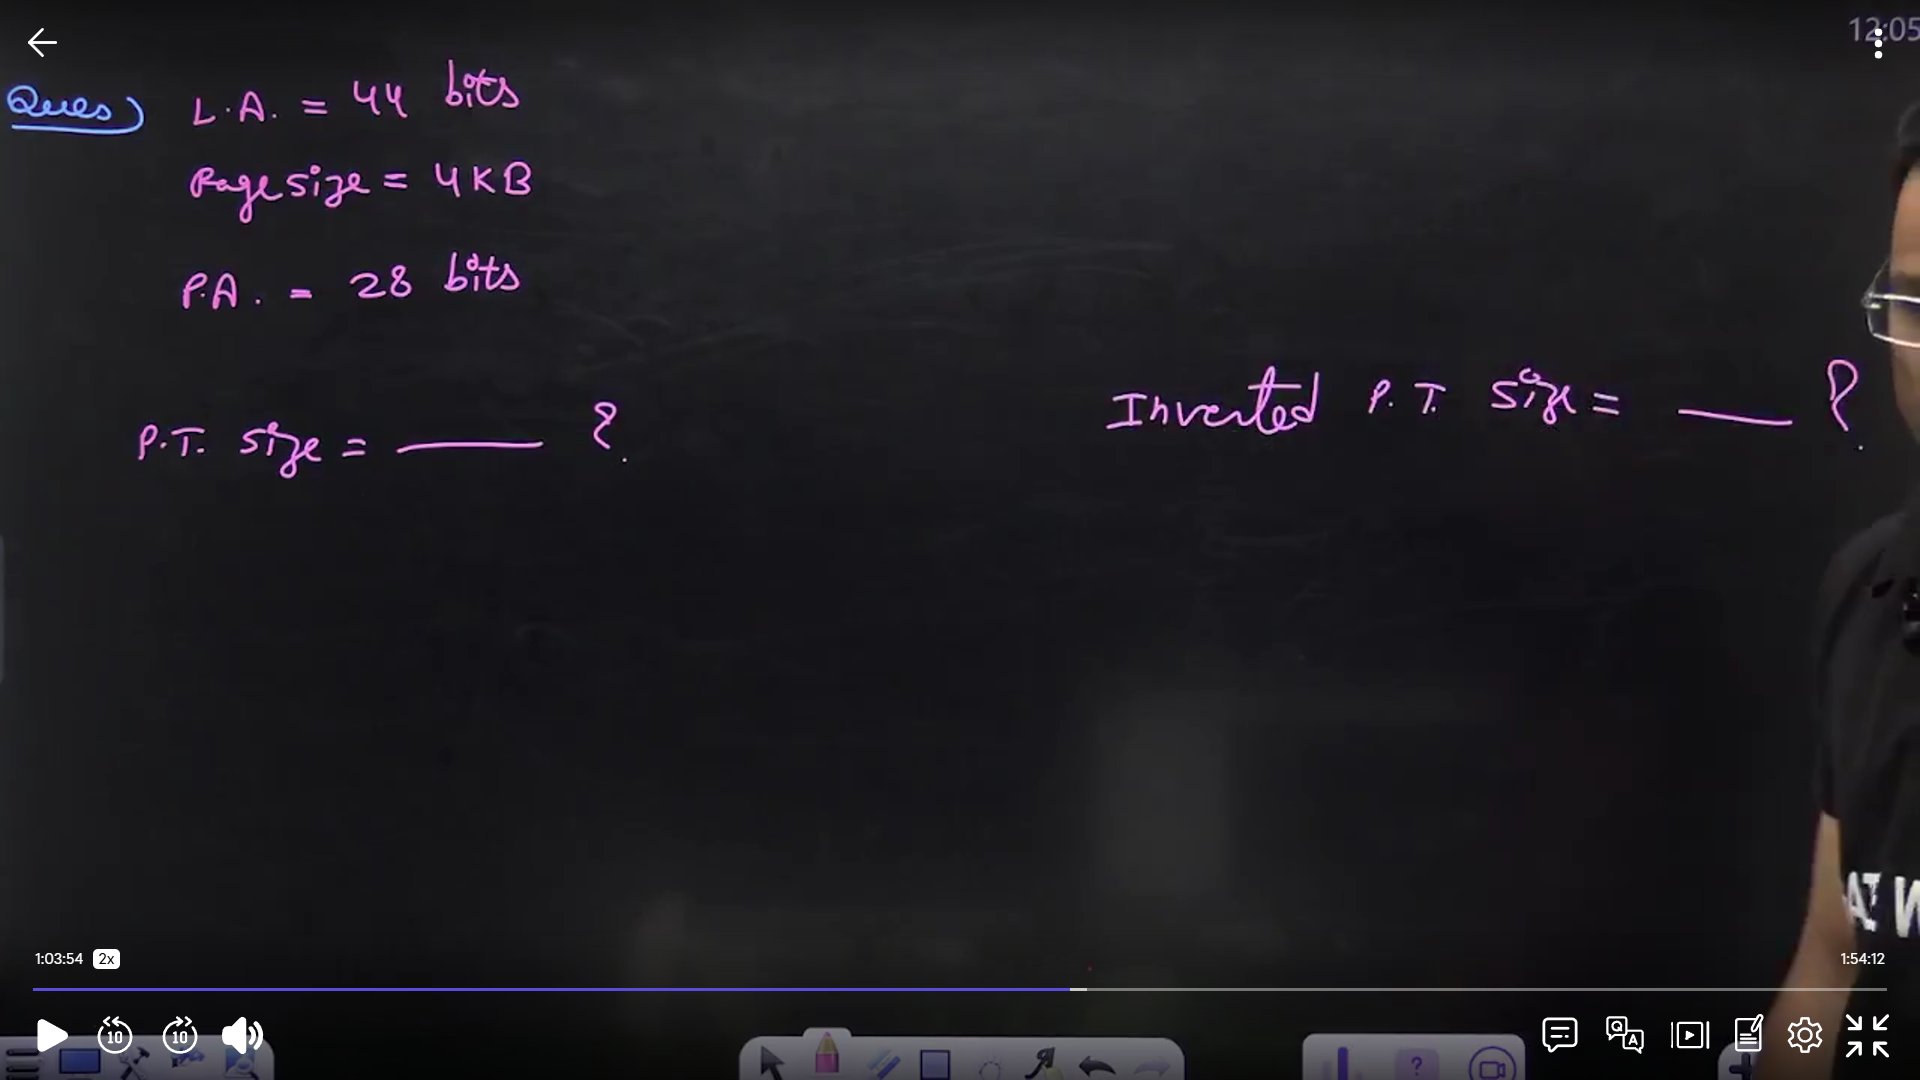 12:05
Ques) L.A. = 44 bits
Page size = 4KB
P.A. = 28 bits
P.T. size = ____ ?
Inverted P.T. size = ____ ?
1:03:54 2x
1:54:12
10 10
Q A
?